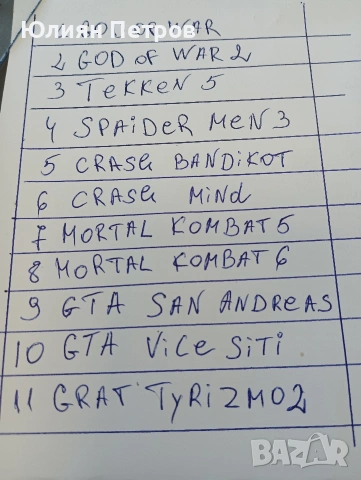 Юлиян Петров
1 GOD OF WAR
2 GOD OF WAR 2
3 TEKKEN 5
4 SPAIDER MEN 3
5 CRASH BANDIKOT
6 CRASH MIND
7 MORTAL KOMBAT 5
8 MORTAL KOMBAT 6
9 GTA SAN ANDREAS
10 GTA VICE SITI
11 GRAT TYRIZMO2
BAZAR